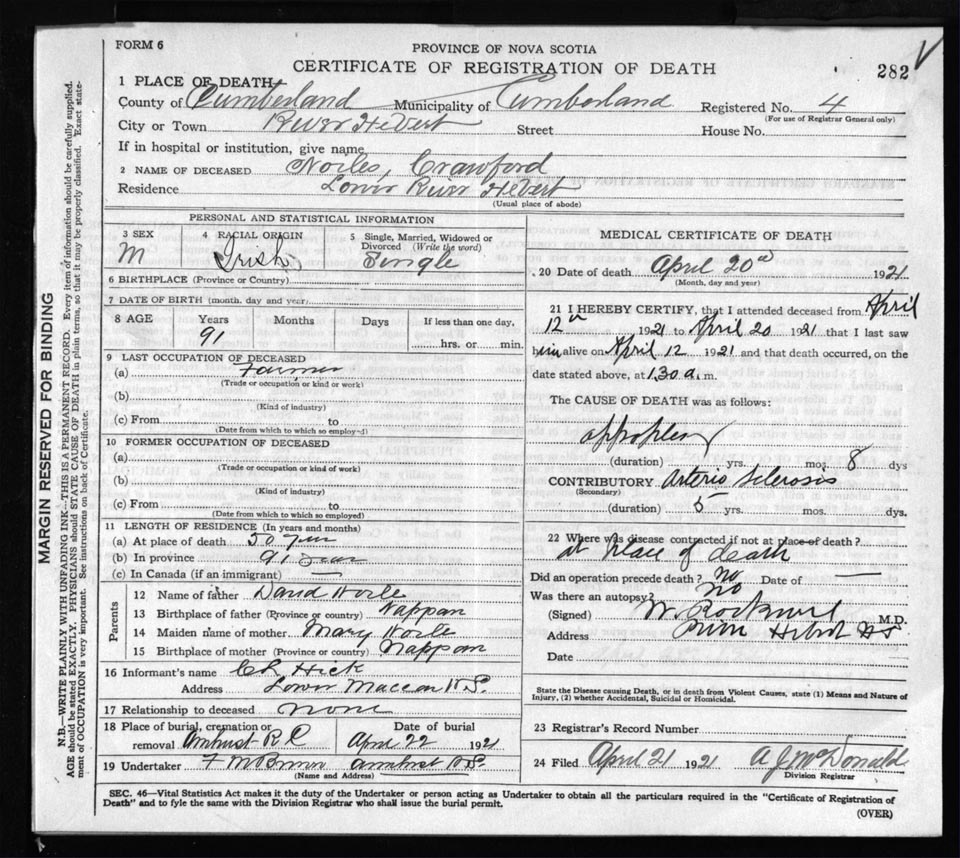 FORM 6
PROVINCE OF NOVA SCOTIA
CERTIFICATE OF REGISTRATION OF DEATH
282
1 PLACE OF DEATH
County of Cumberland Municipality of Cumberland Registered No. 4
(For use of Registrar General only)
City or Town River Hebert Street House No.
If in hospital or institution, give name
2 NAME OF DECEASED Noiles, Crawford
Residence Lower River Hebert
(Usual place of abode)
PERSONAL AND STATISTICAL INFORMATION
3 SEX M
4 RACIAL ORIGIN Irish
5 Single, Married, Widowed or Divorced (Write the word) Single
6 BIRTHPLACE (Province or Country)
7 DATE OF BIRTH (month, day and year)
8 AGE Years Months Days If less than one day,
91 hrs. or min.
9 LAST OCCUPATION OF DECEASED
(a) Farmer
(Trade or occupation or kind or work)
(b)
(Kind of industry)
(c) From to
(Date from which to which so employed)
10 FORMER OCCUPATION OF DECEASED
(a)
(Trade or occupation or kind of work)
(b)
(Kind of industry)
(c) From to
(Date from which to which so employed)
11 LENGTH OF RESIDENCE (In years and months)
(a) At place of death 50
(b) In province 91
(c) In Canada (if an immigrant) —
Parents
12 Name of father David
13 Birthplace of father (Province or country) Nappan
14 Maiden name of mother Mary
15 Birthplace of mother (Province or country) Nappan
16 Informant's name Hick
Address Lower Maccan N.S.
17 Relationship to deceased none
18 Place of burial, cremation or removal Amherst R C
Date of burial April 22 1921
19 Undertaker Amherst N.S.
(Name and Address)
MEDICAL CERTIFICATE OF DEATH
20 Date of death April 20 1921
(Month, day and year)
21 I HEREBY CERTIFY, that I attended deceased from April
12 1921 to April 20 1921 that I last saw
him alive on April 12 1921 and that death occurred, on the
date stated above, at 1.30 a. m.
The CAUSE OF DEATH was as follows:
(duration) yrs. mos. 8 dys
CONTRIBUTORY Arterio Sclerosis
(Secondary)
(duration) 5 yrs. mos. dys.
22 Where was disease contracted if not at place of death?
at place of death
Did an operation precede death? No Date of —
Was there an autopsy? No
(Signed) W Rockwell M.D.
Address River Hebert NS
Date
State the Disease causing Death, or in death from Violent Causes, state (1) Means and Nature of
Injury, (2) whether Accidental, Suicidal or Homicidal.
23 Registrar's Record Number
24 Filed April 21 1921 A J McDonald
Division Registrar
SEC. 46—Vital Statistics Act makes it the duty of the Undertaker or person acting as Undertaker to obtain all the particulars required in the "Certificate of Registration of
Death" and to fyle the same with the Division Registrar who shall issue the burial permit.
(OVER)
MARGIN RESERVED FOR BINDING
N.B.—WRITE PLAINLY WITH UNFADING INK—THIS IS A PERMANENT RECORD. Every item of information should be carefully supplied.
AGE should be stated EXACTLY. PHYSICIANS should STATE CAUSE OF DEATH in plain terms, so that it may be properly classified. Exact state-
ment of OCCUPATION is very important. See instructions on back of Certificate.